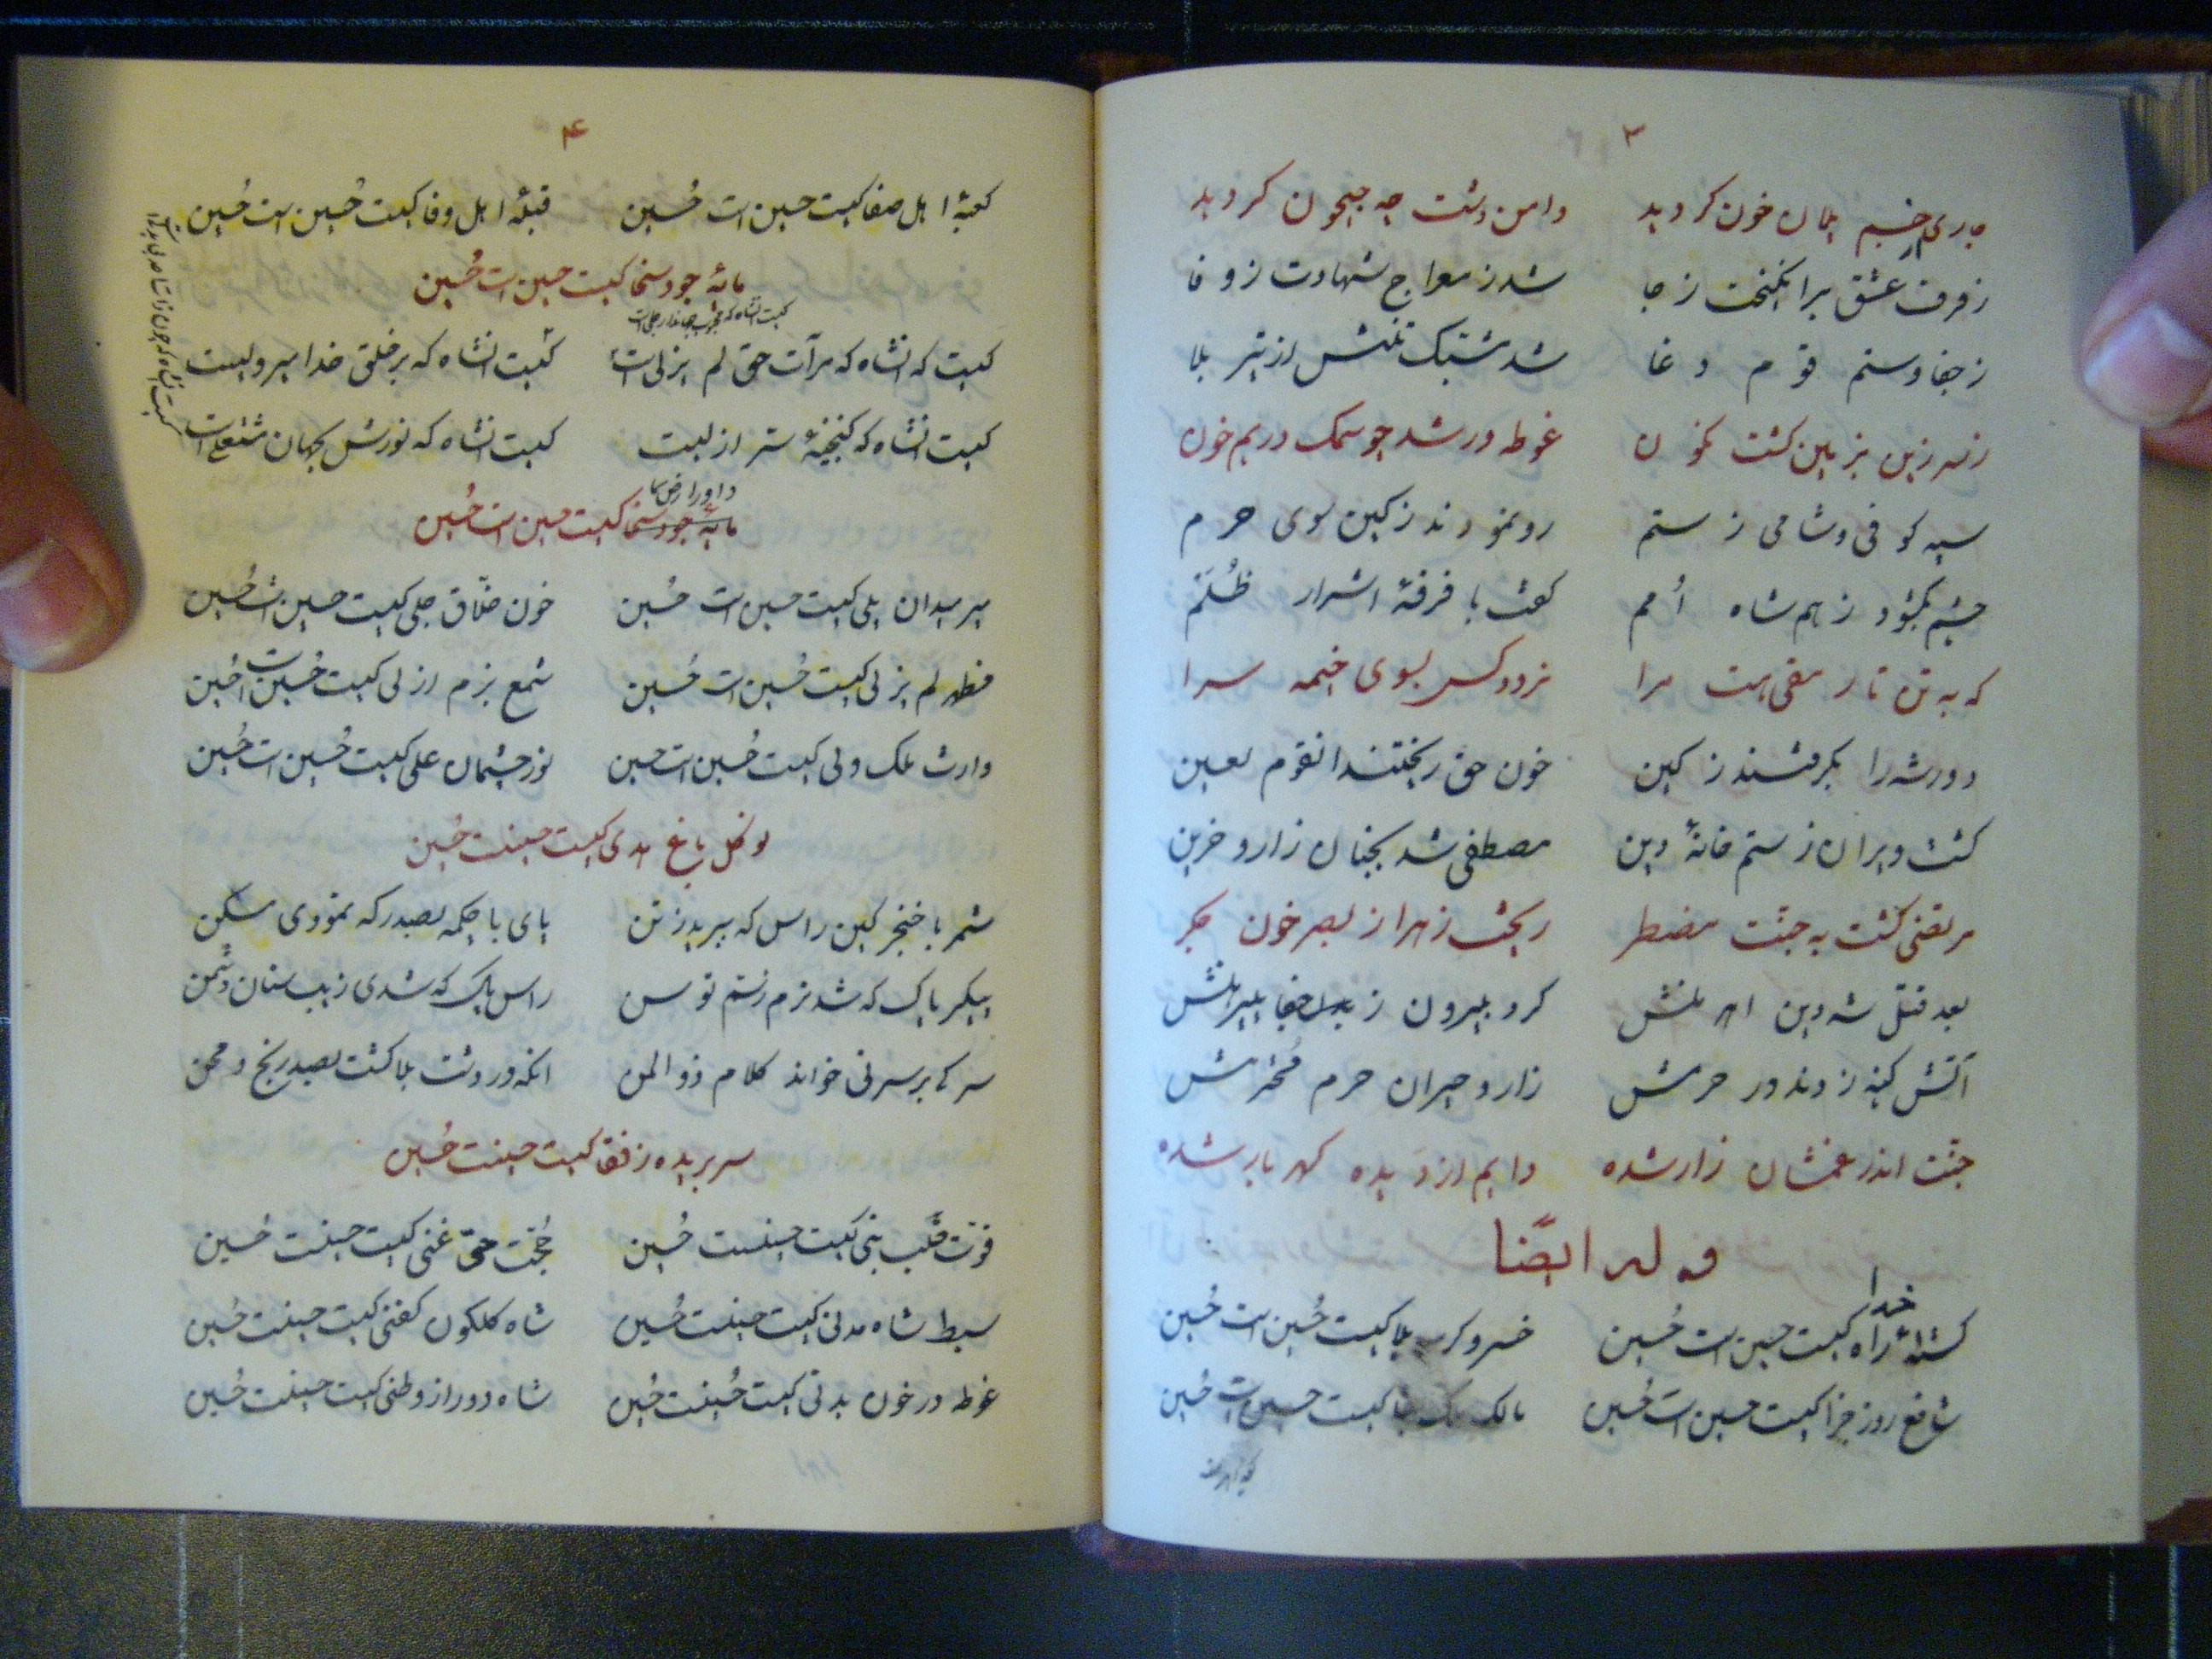 ۳
جاری از چشم یلان خون کردید دامن دشت چه جیحون کردید
رفرف عشق برانگیخت ز جا شد ز معراج شهادت ز وفا
ز جفا و ستم قوم دغا شد مشبک تنش از تیر بلا
ز سر زین بزمین کشت نکون غوطه ور شد چو سمک در یم خون
سپه کوفی و شامی ز ستم رو نمودند ز کین سوی حرم
چشم بکشود ز هم شاه اُمم کفت با فرقهٔ اشرار ظُلَم
که به تن تا رمقی هست مرا نرود کس بسوی خیمه سرا
دور شه را بکرفتند ز کین خون حق ریختند انقوم لعین
کشت ویران ز ستم خانهٔ دین مصطفی شد بجنان زار و حزین
مرتضی کشت به جنّت مضطر ریخت زهرا ز بصر خون جکر
بعد قتل شه دین اهرمنش کرد بیرون ز جفا پیرهنش
آتش کینه زدند در حرمش زار و حیران حرم محترمش
جنّت اندر غمشان زار شده دایم از دیده کهر بار شده
وله ایضًا
کشتهٔ راه خدا کیست حسین است حُسین خسرو کرب بلا کیست حُسین است حُسین
شافع روز جزا کیست حسین است حُسین مالک ملک کیست حسین است حُسین
۴
کعبهٔ اهل صفا کیست حسین است حُسین قبلهٔ اهل وفا کیست حُسین است حُسین
مایهٔ جود سخا کیست حسین است حُسین
کیست انشاه که
کیست که انشاه که مرآت حق لم یزلی است کیست انشاه که بر خلق خدا میر و لیست
کیست انشاه که کنجینهٔ سر ازلیست کیست انشاه که نورش بجهان مشتعل است
کیست انشاه که چون
داور ارض سما
مایهٔ جود سخا کیست حسین است حُسین
میر میدان بلی کیست حسین است حُسین خون خلّاق جلی کیست حسین است حُسین
مظهر لم یزلی کیست حُسین است حُسین شمع بزم ازلی کیست حُسین است حُسین
وارث ملک ولی کیست حُسین است حسین نور چشمان علی کیست حُسین است حُسین
نوکل باغ هدی کیست حسینست حُسین
شمر با خنجر کین راس که ببرید ز تن پای با چکمه بصدر که نمودی مسکن
پیکر پاک که شد نرم ز سم توسن راس پاک که شدی زیب سنان دشمن
سر که بر سر نی خواند کلام ذو المن انکه در دشت بلا کشت بصد رنج و محن
سر بریده ز قفا کیست حسینست حُسین
قوّت قلب نبی کیست حسینست حُسین حُجّت حیّ غنی کیست حسینست حُسین
سبط شاه مدنی کیست حسینست حُسین شاه کلکون کفنی کیست حسینست حُسین
غوطه در خون بدنی کیست حُسینست حُسین شاه دور از وطنی کیست حسینست حُسین